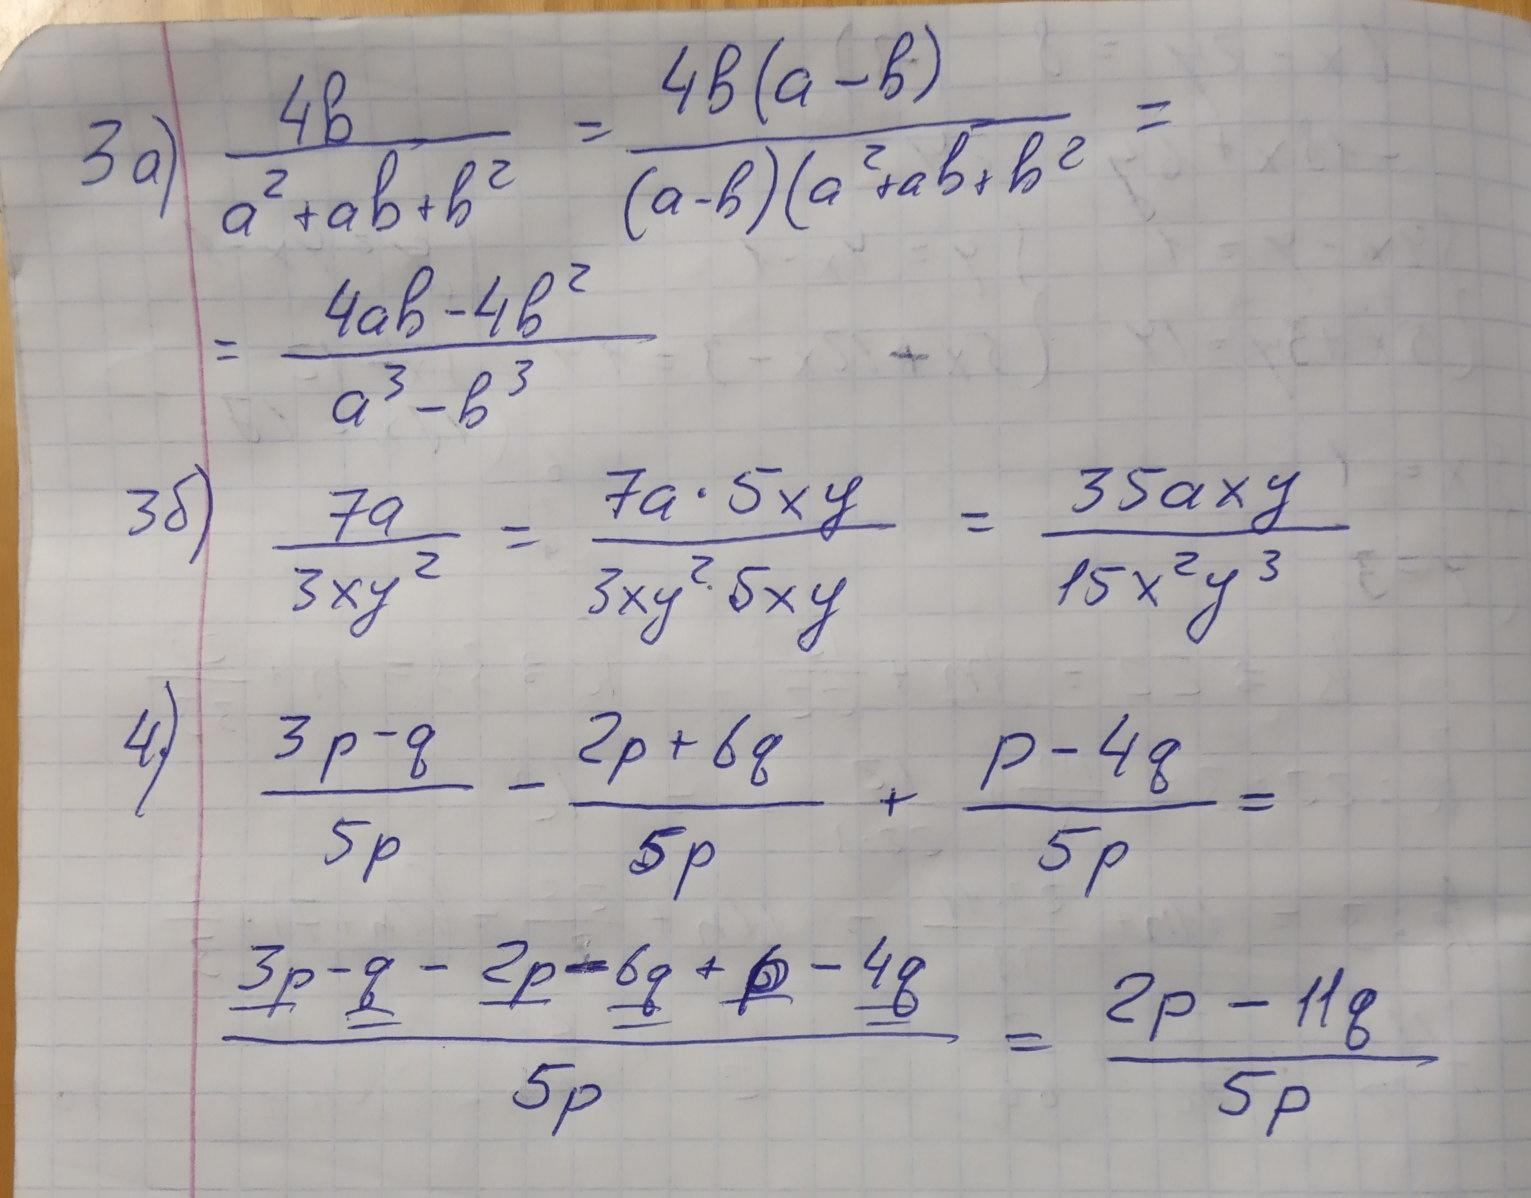 3а) 4b/(a²+ab+b²) = 4b(a-b)/((a-b)(a²+ab+b²) =
= (4ab-4b²)/(a³-b³)
3б) 7a/(3xy²) = (7a·5xy)/(3xy²·5xy) = 35axy/(15x²y³)
4) (3p-q)/(5p) - (2p+6q)/(5p) + (p-4q)/(5p) =
(3p-q-2p-6q+p-4q)/(5p) = (2p-11q)/(5p)